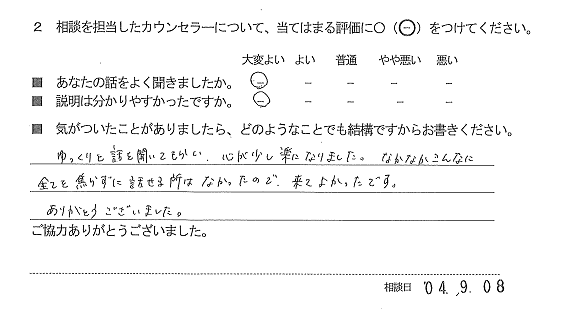 ２ 相談を担当したカウンセラーについて、当てはまる評価に○（⊖）をつけてください。
大変よい よい 普通 やや悪い 悪い
■ あなたの話をよく聞きましたか。 － － － － －
■ 説明は分かりやすかったですか。 － － － － －
■ 気がついたことがありましたら、どのようなことでも結構ですからお書きください。
ゆっくりと話を聞いてもらい、心が少し楽になりました。なかなかこんなに
全てを焦らずに話せる所はなかったので、来てよかったです。
ありがとうございました。
ご協力ありがとうございました。
相談日 '04.,9.08